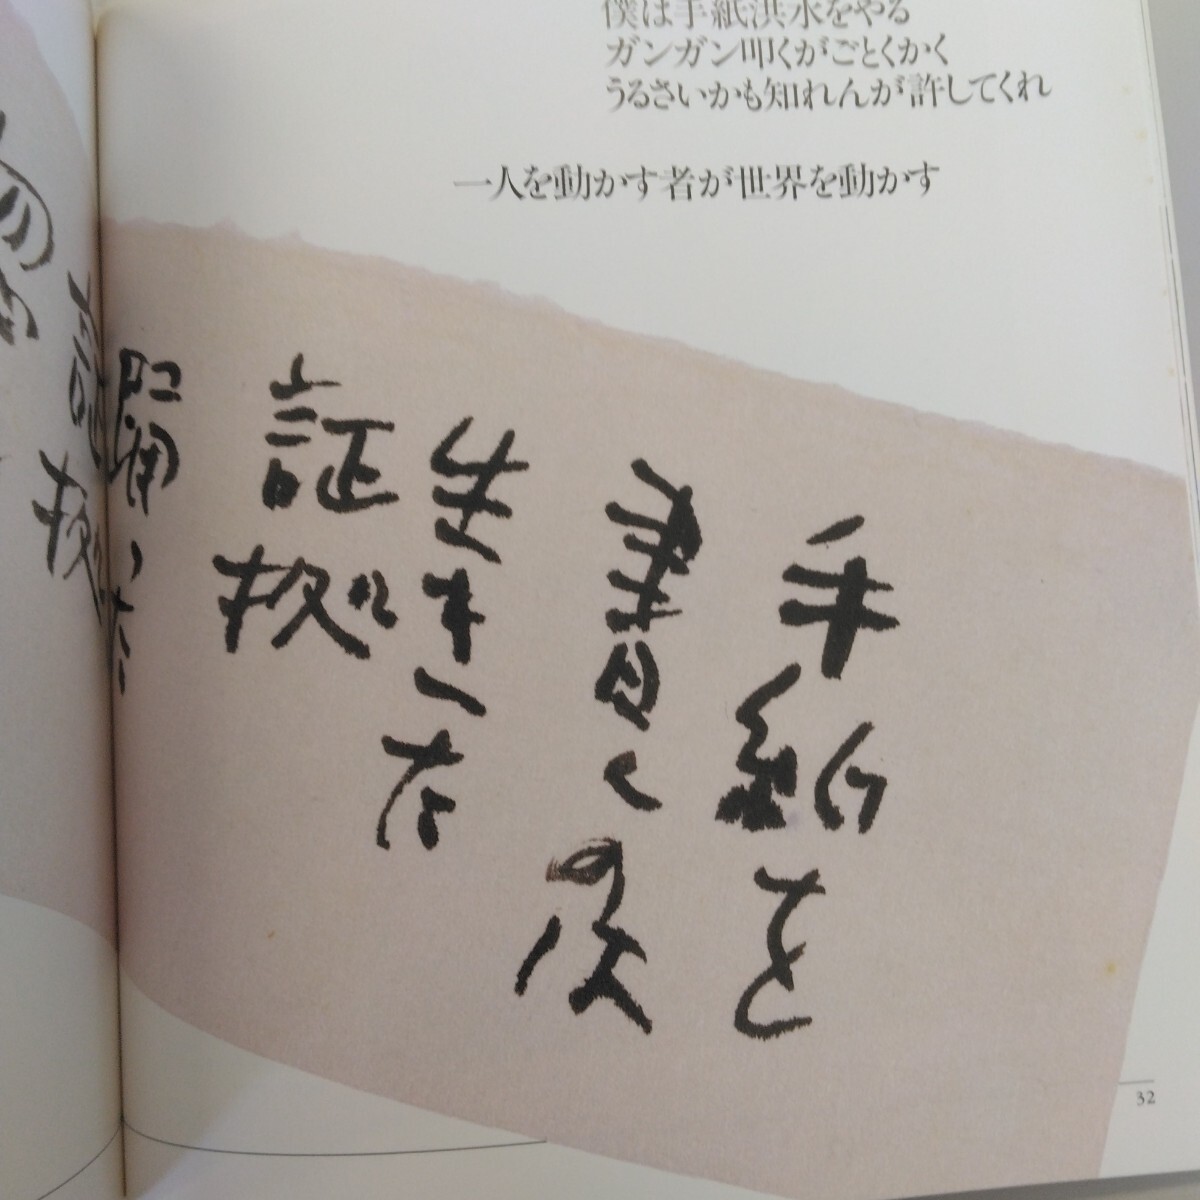 僕は手紙洪水をやる
ガンガン叩くがごとくかく
うるさいかも知れんが許してくれ
一人を動かす者が世界を動かす
手紙を
書くのは
生きた
証拠
証拠
32